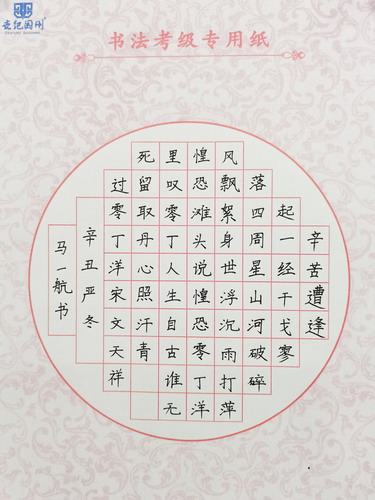 书法考级专用纸
辛苦遭逢
起一经干戈寥
落四周星山河破碎
风飘絮身世浮沉雨打萍
惶恐滩头说惶恐零丁洋
里叹零丁人生自古谁无
死留取丹心照汗青
过零丁洋宋文天祥
辛丑严冬
马一航书